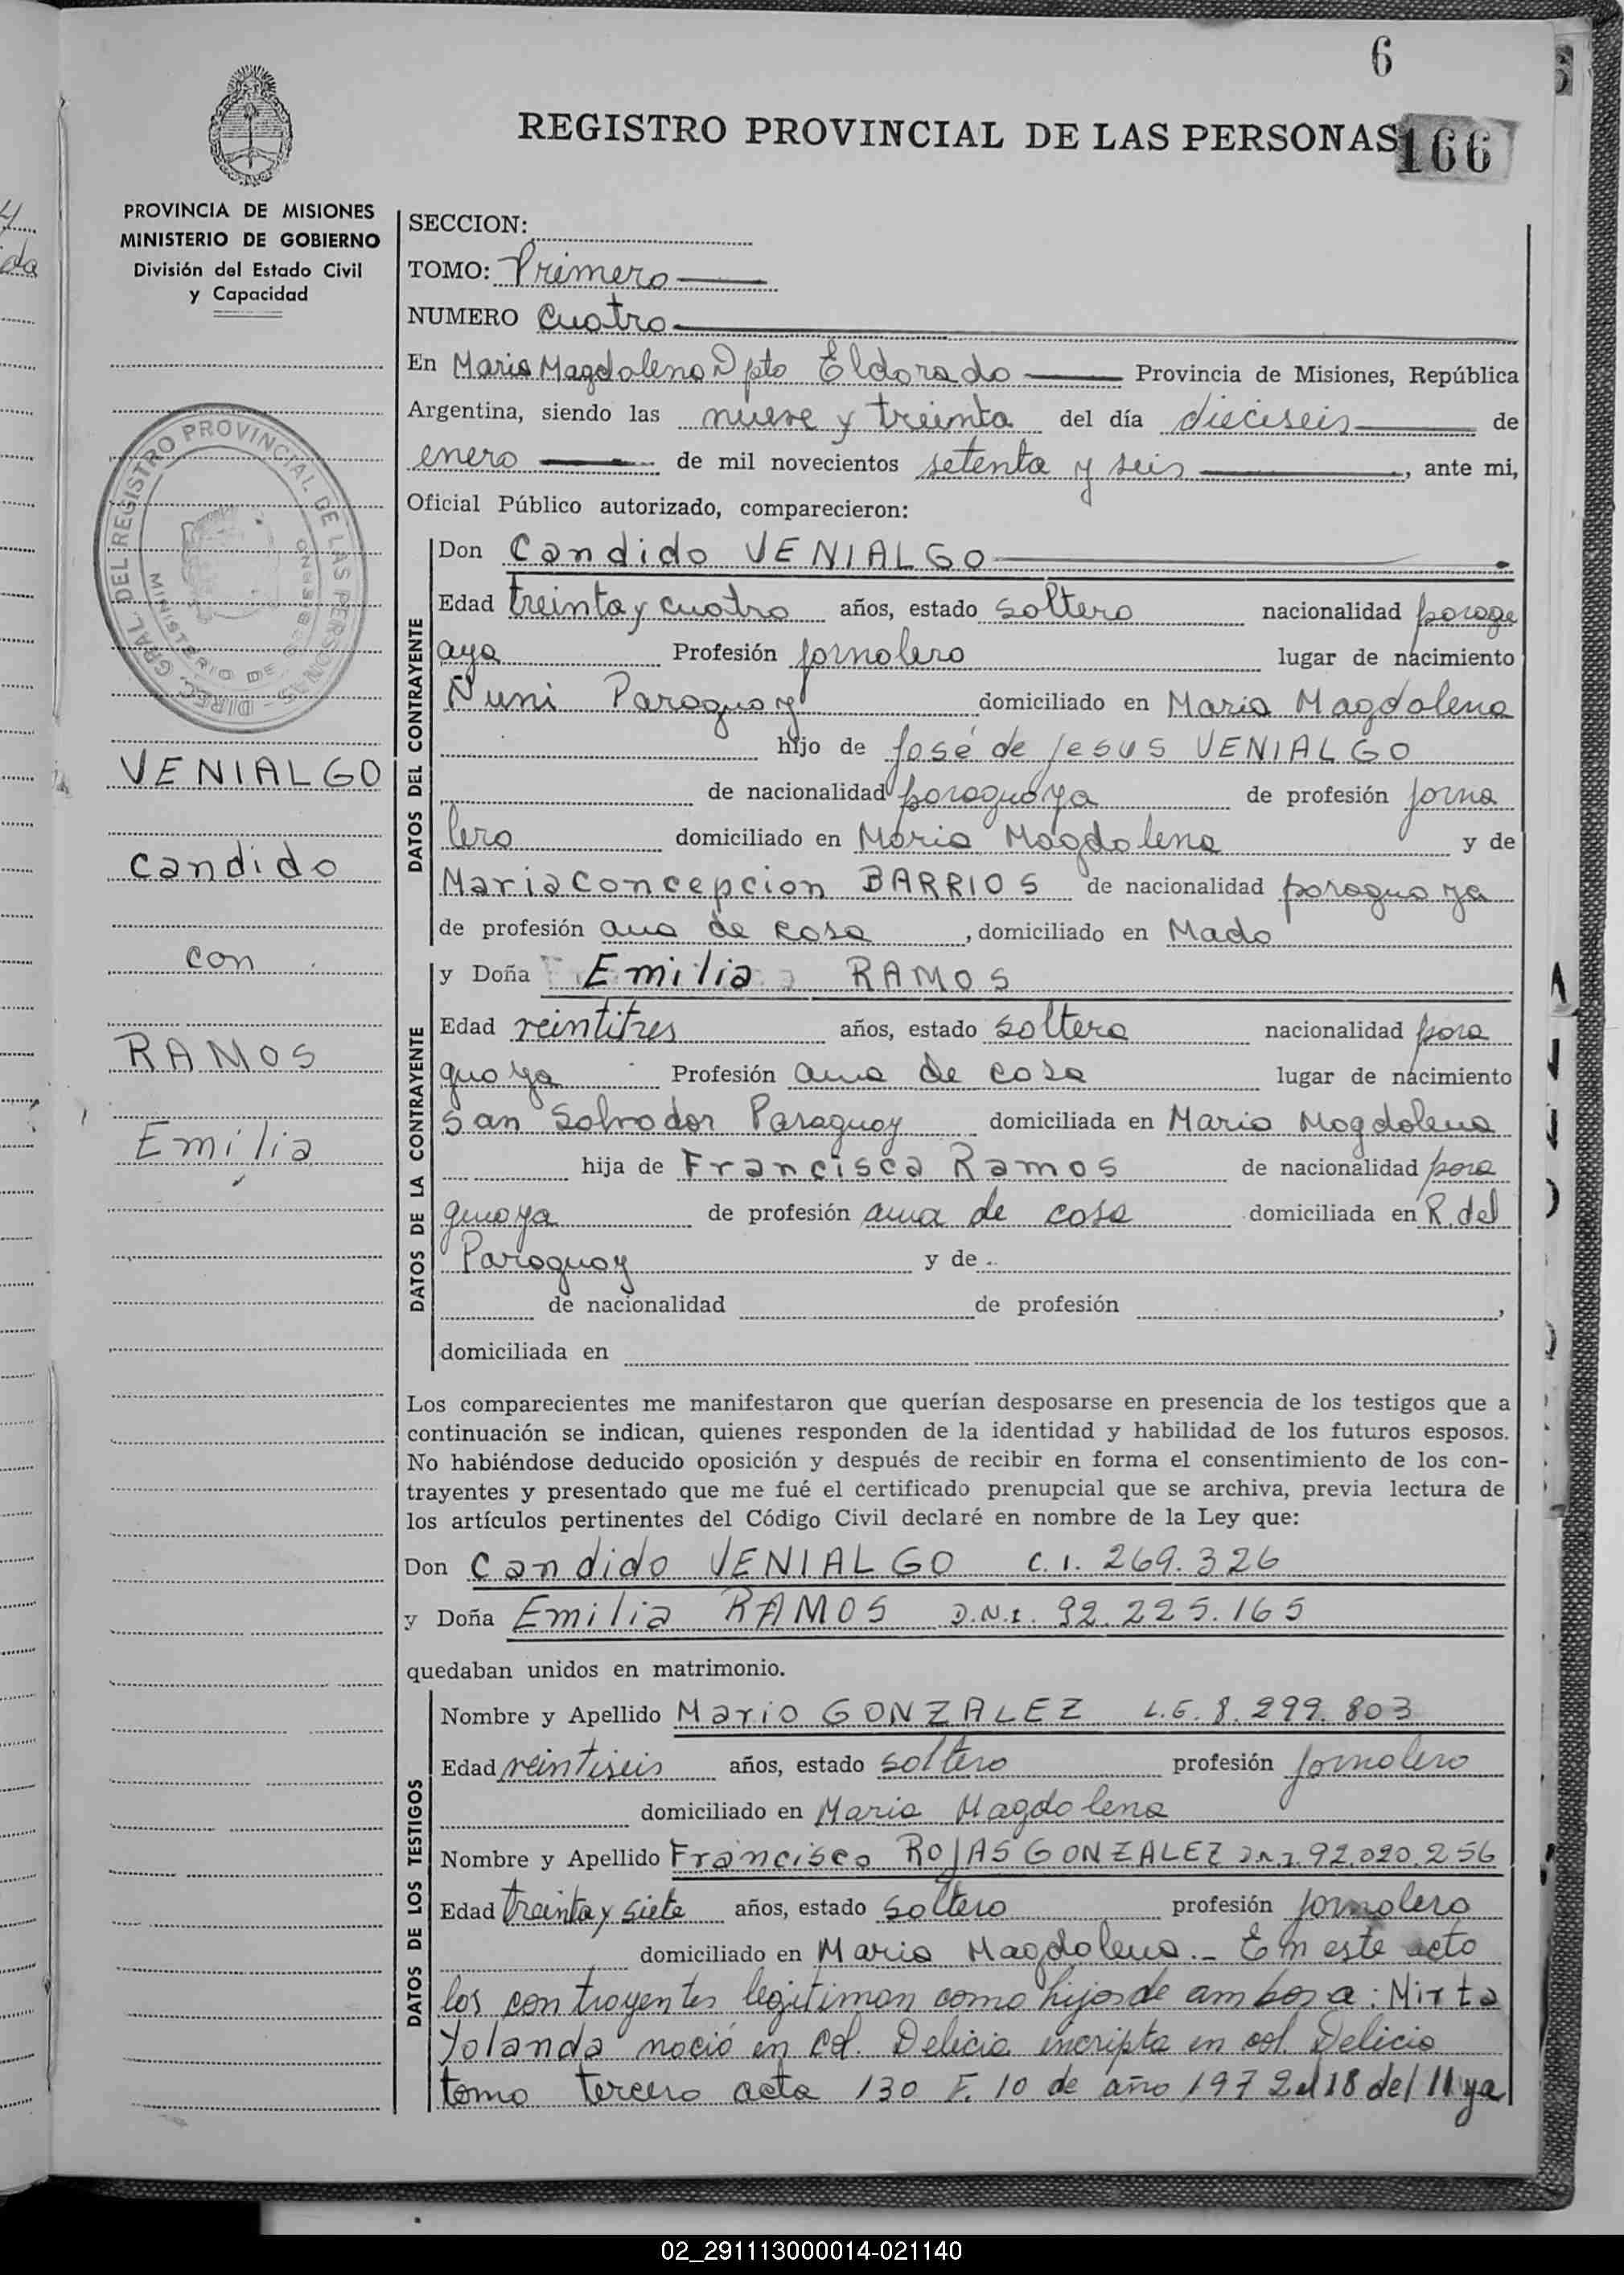 6
REGISTRO PROVINCIAL DE LAS PERSONAS
166
PROVINCIA DE MISIONES
MINISTERIO DE GOBIERNO
División del Estado Civil
y Capacidad
DIREC. GRAL. DEL REGISTRO PROVINCIAL DE LAS PERSONAS
MINISTERIO DE GOBIERNO
VENIALGO
Candido
con
RAMOS
Emilia
SECCION:
TOMO: Primero
NUMERO Cuatro
En Maria Magdalena Dpto Eldorado Provincia de Misiones, República
Argentina, siendo las nueve y treinta del día dieciseis de
enero de mil novecientos setenta y seis, ante mi,
Oficial Público autorizado, comparecieron:
DATOS DEL CONTRAYENTE
Don Candido VENIALGO
Edad treinta y cuatro años, estado soltero nacionalidad parage
aya Profesión jornalero lugar de nacimiento
Ñumi Paraguay domiciliado en Maria Magdalena
hijo de José de Jesus VENIALGO
de nacionalidad paraguaya de profesión jorna
lero domiciliado en Maria Magdalena y de
Maria Concepcion BARRIOS de nacionalidad paraguaya
de profesión ama de casa, domiciliado en Mado
DATOS DE LA CONTRAYENTE
y Doña Emilia RAMOS
Edad veintitres años, estado soltera nacionalidad para
guaya Profesión ama de casa lugar de nacimiento
San Salvador Paraguay domiciliada en Maria Magdalena
hija de Francisca Ramos de nacionalidad para
guaya de profesión ama de casa domiciliada en R. del
Paraguay y de
de nacionalidad de profesión ,
domiciliada en
Los comparecientes me manifestaron que querían desposarse en presencia de los testigos que a
continuación se indican, quienes responden de la identidad y habilidad de los futuros esposos.
No habiéndose deducido oposición y después de recibir en forma el consentimiento de los con-
trayentes y presentado que me fué el certificado prenupcial que se archiva, previa lectura de
los artículos pertinentes del Código Civil declaré en nombre de la Ley que:
Don Candido VENIALGO C.I. 269.326
y Doña Emilia RAMOS D.N.I. 92.225.165
quedaban unidos en matrimonio.
DATOS DE LOS TESTIGOS
Nombre y Apellido Mario GONZALEZ L.E. 8.299.803
Edad veintiseis años, estado soltero profesión jornalero
domiciliado en Maria Magdalena
Nombre y Apellido Francisco ROJAS GONZALEZ DNI. 92.020.256
Edad treinta y siete años, estado soltero profesión jornalero
domiciliado en Maria Magdalena.- En este acto
los contrayentes legitiman como hijos de ambos a: Mirta
Yolanda nació en Col. Delicia incripta en col. Delicia
tomo tercero acta 130 F. 10 de año 1972 el 18 del 11 ya
02_291113000014-021140